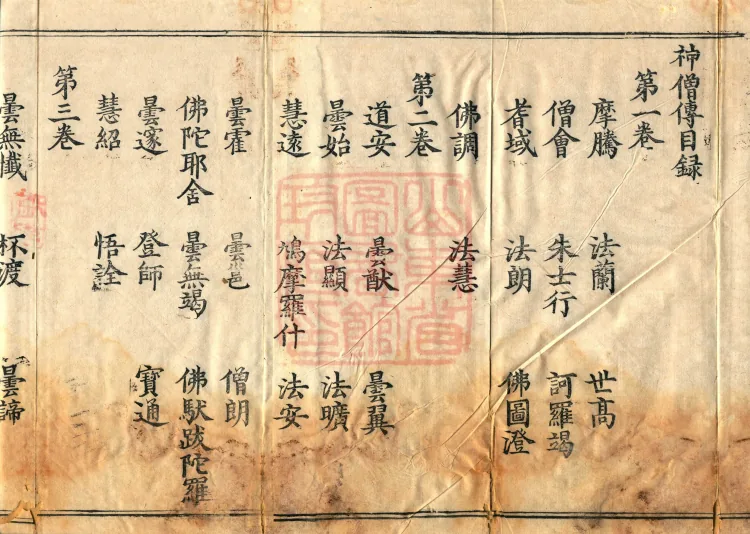 神僧傳目録
第一卷
摩騰 法蘭 世高
僧會 朱士行 訶羅竭
耆域 法朗 佛圖澄
佛調 法慧
第二卷
道安 曇猷 曇翼
曇始 法顯 法曠
慧遠 鳩摩羅什 法安
曇霍 曇邕 僧朗
佛陀耶舍 曇無竭 佛馱跋陀羅
曇邃 登師 寶通
慧紹 悟詮
第三卷
曇無懺 杯渡 曇諦